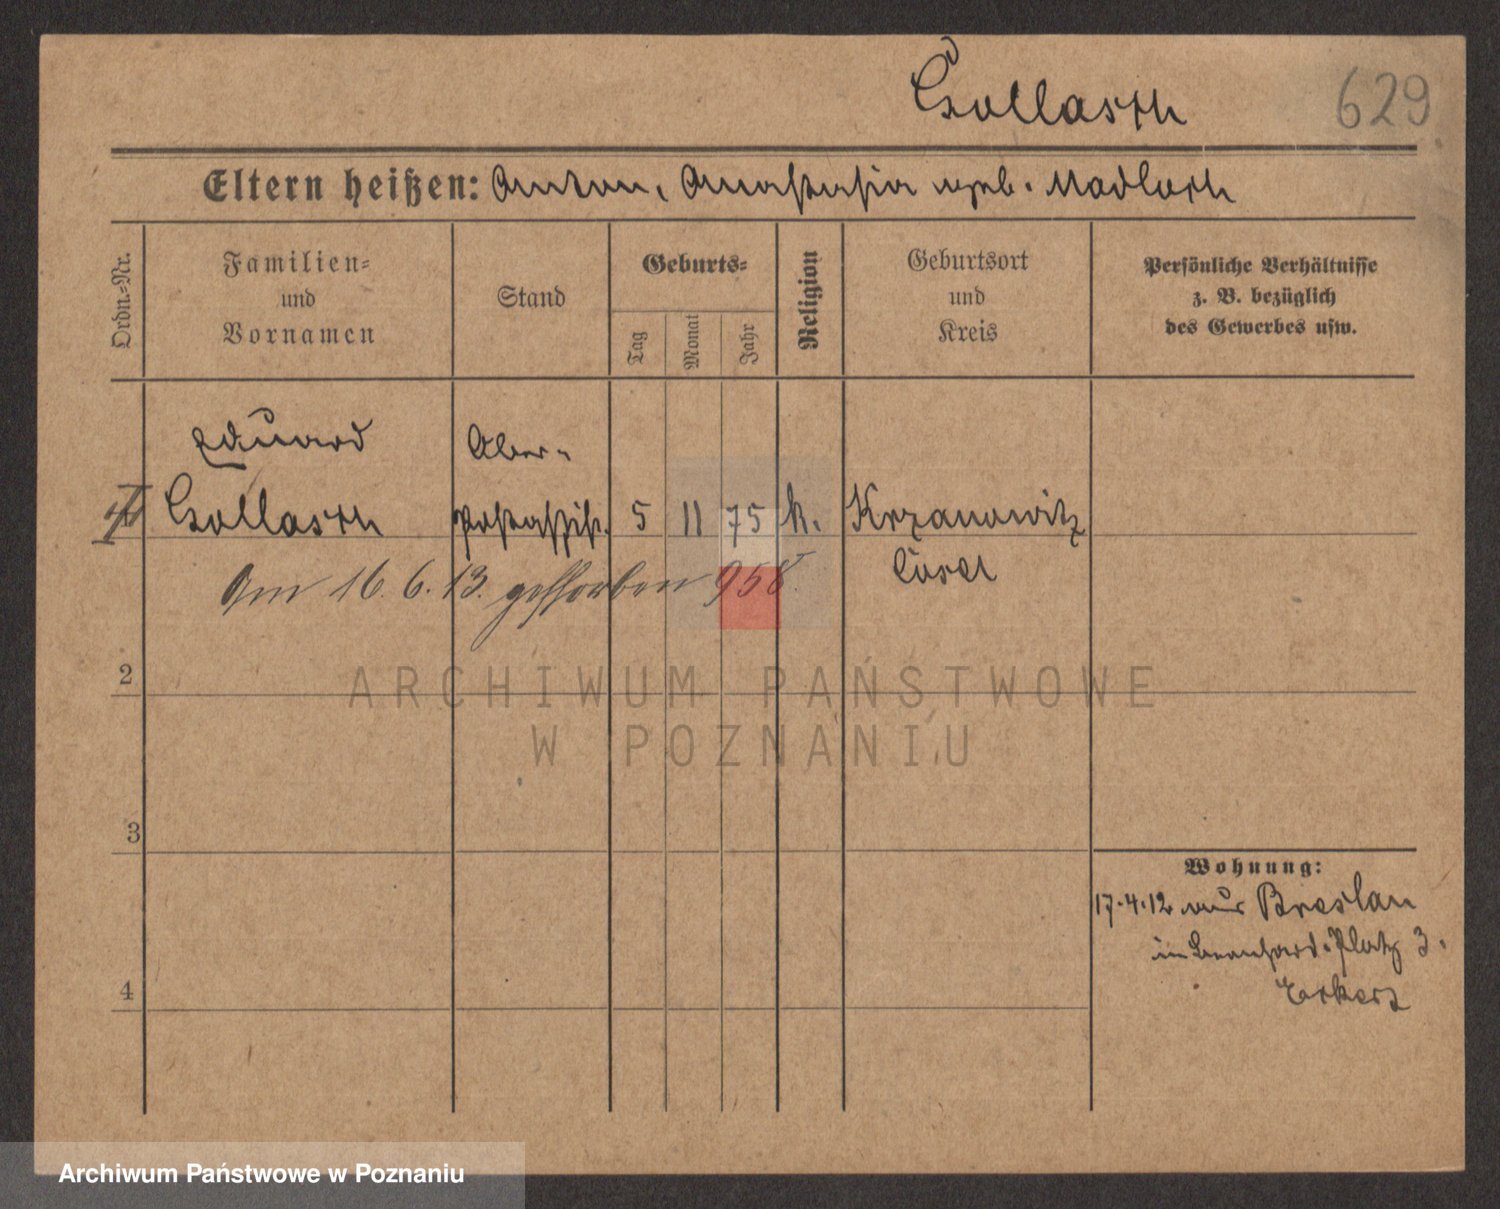 Gollasch 629
Eltern heißen: Anton, Anastasia geb. Madlasch
Ordn.-Nr.
Familien-
und
Vornamen
Stand
Geburts-
Tag
Monat
Jahr
Religion
Geburtsort
und
Kreis
Persönliche Verhältnisse
z. B. bezüglich
des Gewerbes usw.
Eduard
Ober-
Gollasch Postassist. 5 11 75 k. Kranowitz
Cosel
Am 16. 6. 13. gestorben 958.
2
ARCHIWUM PAŃSTWOWE
W POZNANIU
3
Wohnung:
17.4.12 aus Breslau
Platz 3.
4
Archiwum Państwowe w Poznaniu